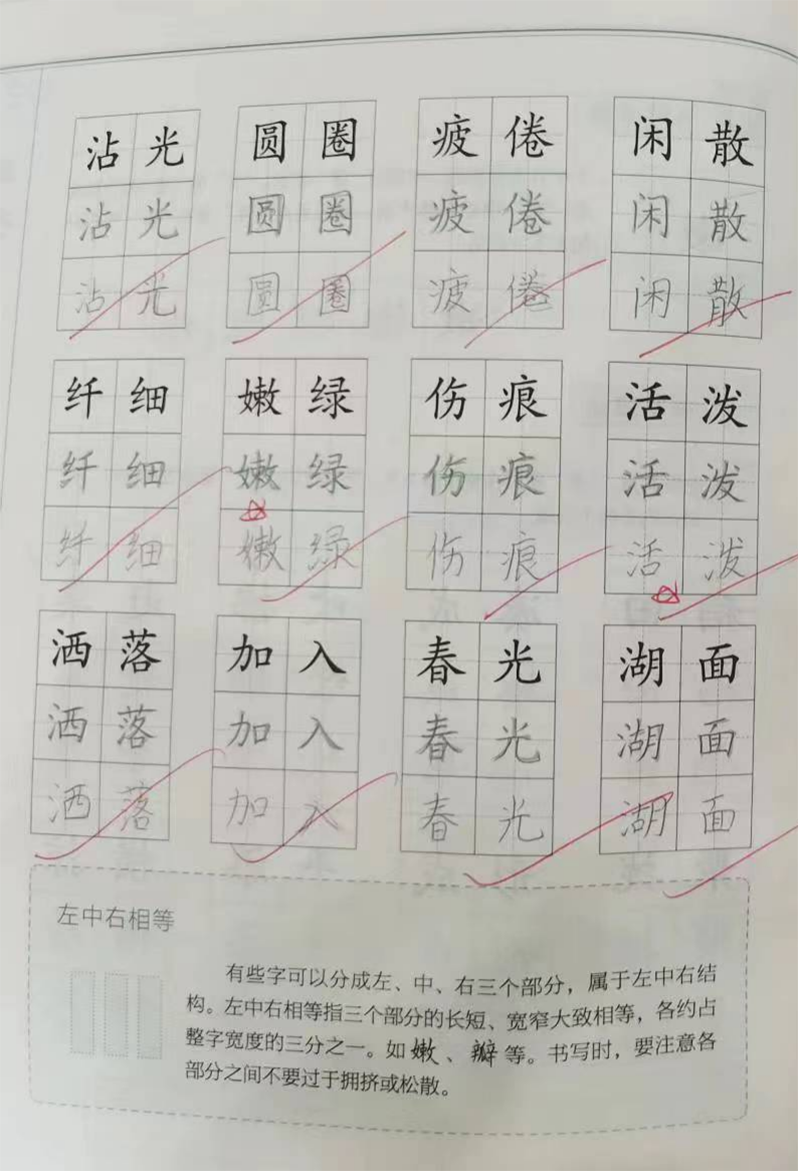 沾光 圆圈 疲倦 闲散
沾光 圆圈 疲倦 闲散
沾光 圆圈 疲倦 闲散
纤细 嫩绿 伤痕 活泼
纤细 嫩绿 伤痕 活泼
纤细 嫩绿 伤痕 活泼
洒落 加入 春光 湖面
洒落 加入 春光 湖面
洒落 加入 春光 湖面
左中右相等
有些字可以分成左、中、右三个部分，属于左中右结
构。左中右相等指三个部分的长短、宽窄大致相等，各约占
整字宽度的三分之一。如嫩、瓣等。书写时，要注意各
部分之间不要过于拥挤或松散。